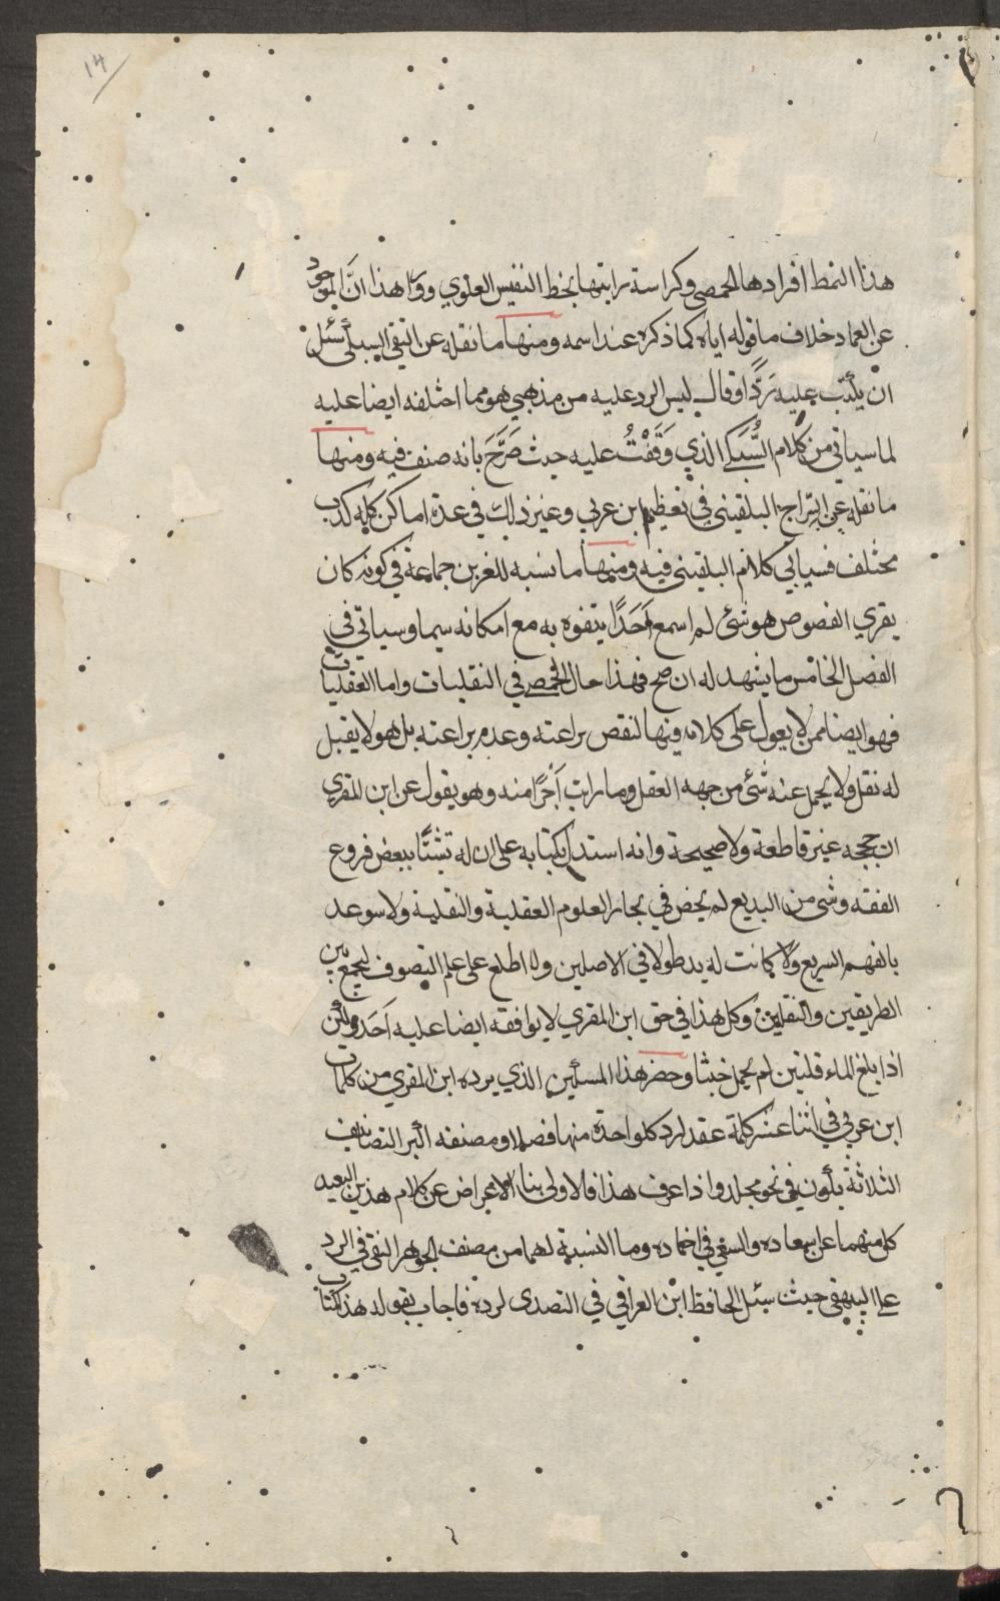 ١٤
هذا النمط افرادها الحمصي وكراسة رايتها بخط النفيس العلوي ووراهذا انَّ الموجود
عن العماد خلاف ما قوله اياه كما ذكره عند اسمه ومنها ما نقله عن التقي السبكي سئل
ان يكتب عليه رَدًّا وقال ليس الرد عليه من مذهبي هو مما اختلفه ايضا عليه
لما سياتي من كلام السُّبكي الذي وَقَفْتُ عليه حيث صَرَّحَ بانه صنف فيه ومنها
ما نقله عن السراج البلقيني في تعظيم ابن عربي وغير ذلك في عدة اماكن كله كذب
مختلف فسياتي كلام البلقيني فيه ومنها ما نسبه للعز بن جماعة في كونه كان
يقري الفصوص هو شئ لم اسمع اَحَدًا يتفوه به مع امكانه سيما وسياتي في
الفصل الخامس ما يشهد له ان صح فهذا حال الحمصي في النقليات واما العقليات
فهو ايضا ممن لا يعول على كلامه فيها لنقص براعته وعدم براعته بل هو لا يقبل
له نقل ولا يحمل عنه شئ من جهه العقل وما رايت اَجْرَا منه وهو يقول عن ابن المقري
ان حججه غير قاطعة ولا صحيحة وانه استدل بكتابه على ان له تشبثًا ببعض فروع
الفقه وشئ من البديع لم يخض في بحار العلوم العقلية والنقلية ولا سوعد
بالفهم السريع ولا كانت له يد طولا في الاصلين ولا اطلع على علم التصوف ليجمع بين
الطريقين والنقلين وكل هذا في حق ابن المقري لا يوافقه ايضا عليه اَحَد ولكن
اذا بلغ الماء قلتين لم يحمل خبثا وحصر هذا المسكين الذي يرده ابن المقري من كلمات
ابن عربي في اثنا عشر كلمة عقد لرد كل واحدة منها فصلا ومصنفه اكبر التصانيف
الثلاثة يكون في نحو مجلد واذا عرف هذا فالاولى بنا الاعراض عن كلام هذين البعيد
كل منهما عن اسعاده والسعي في اخماده وما النسبة لهما من مصنف الجوهر النقي في الرد
على البيهقي حيث سئل الحافظ ابن العراقي في التصدى لرده فاجاب بقوله هذا كتاب